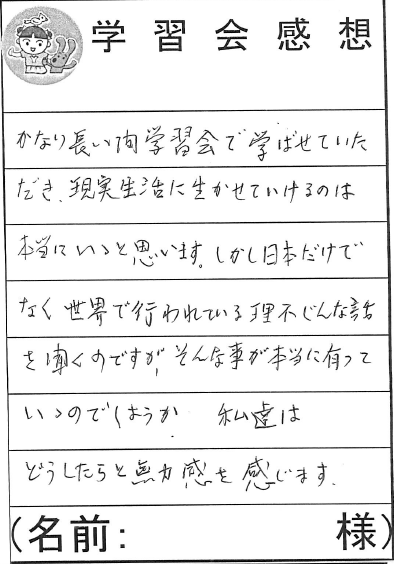 学習会感想
かなり長い間学習会で学ばせていた
だき、現実生活に生かせていけるのは
本当にいいと思います。しかし日本だけで
なく世界で行われている理不じんな話
を聞くのですが、そんな事が本当に有って
いいのでしょうか 私達は
どうしたらと無力感を感じます。
(名前: 様)